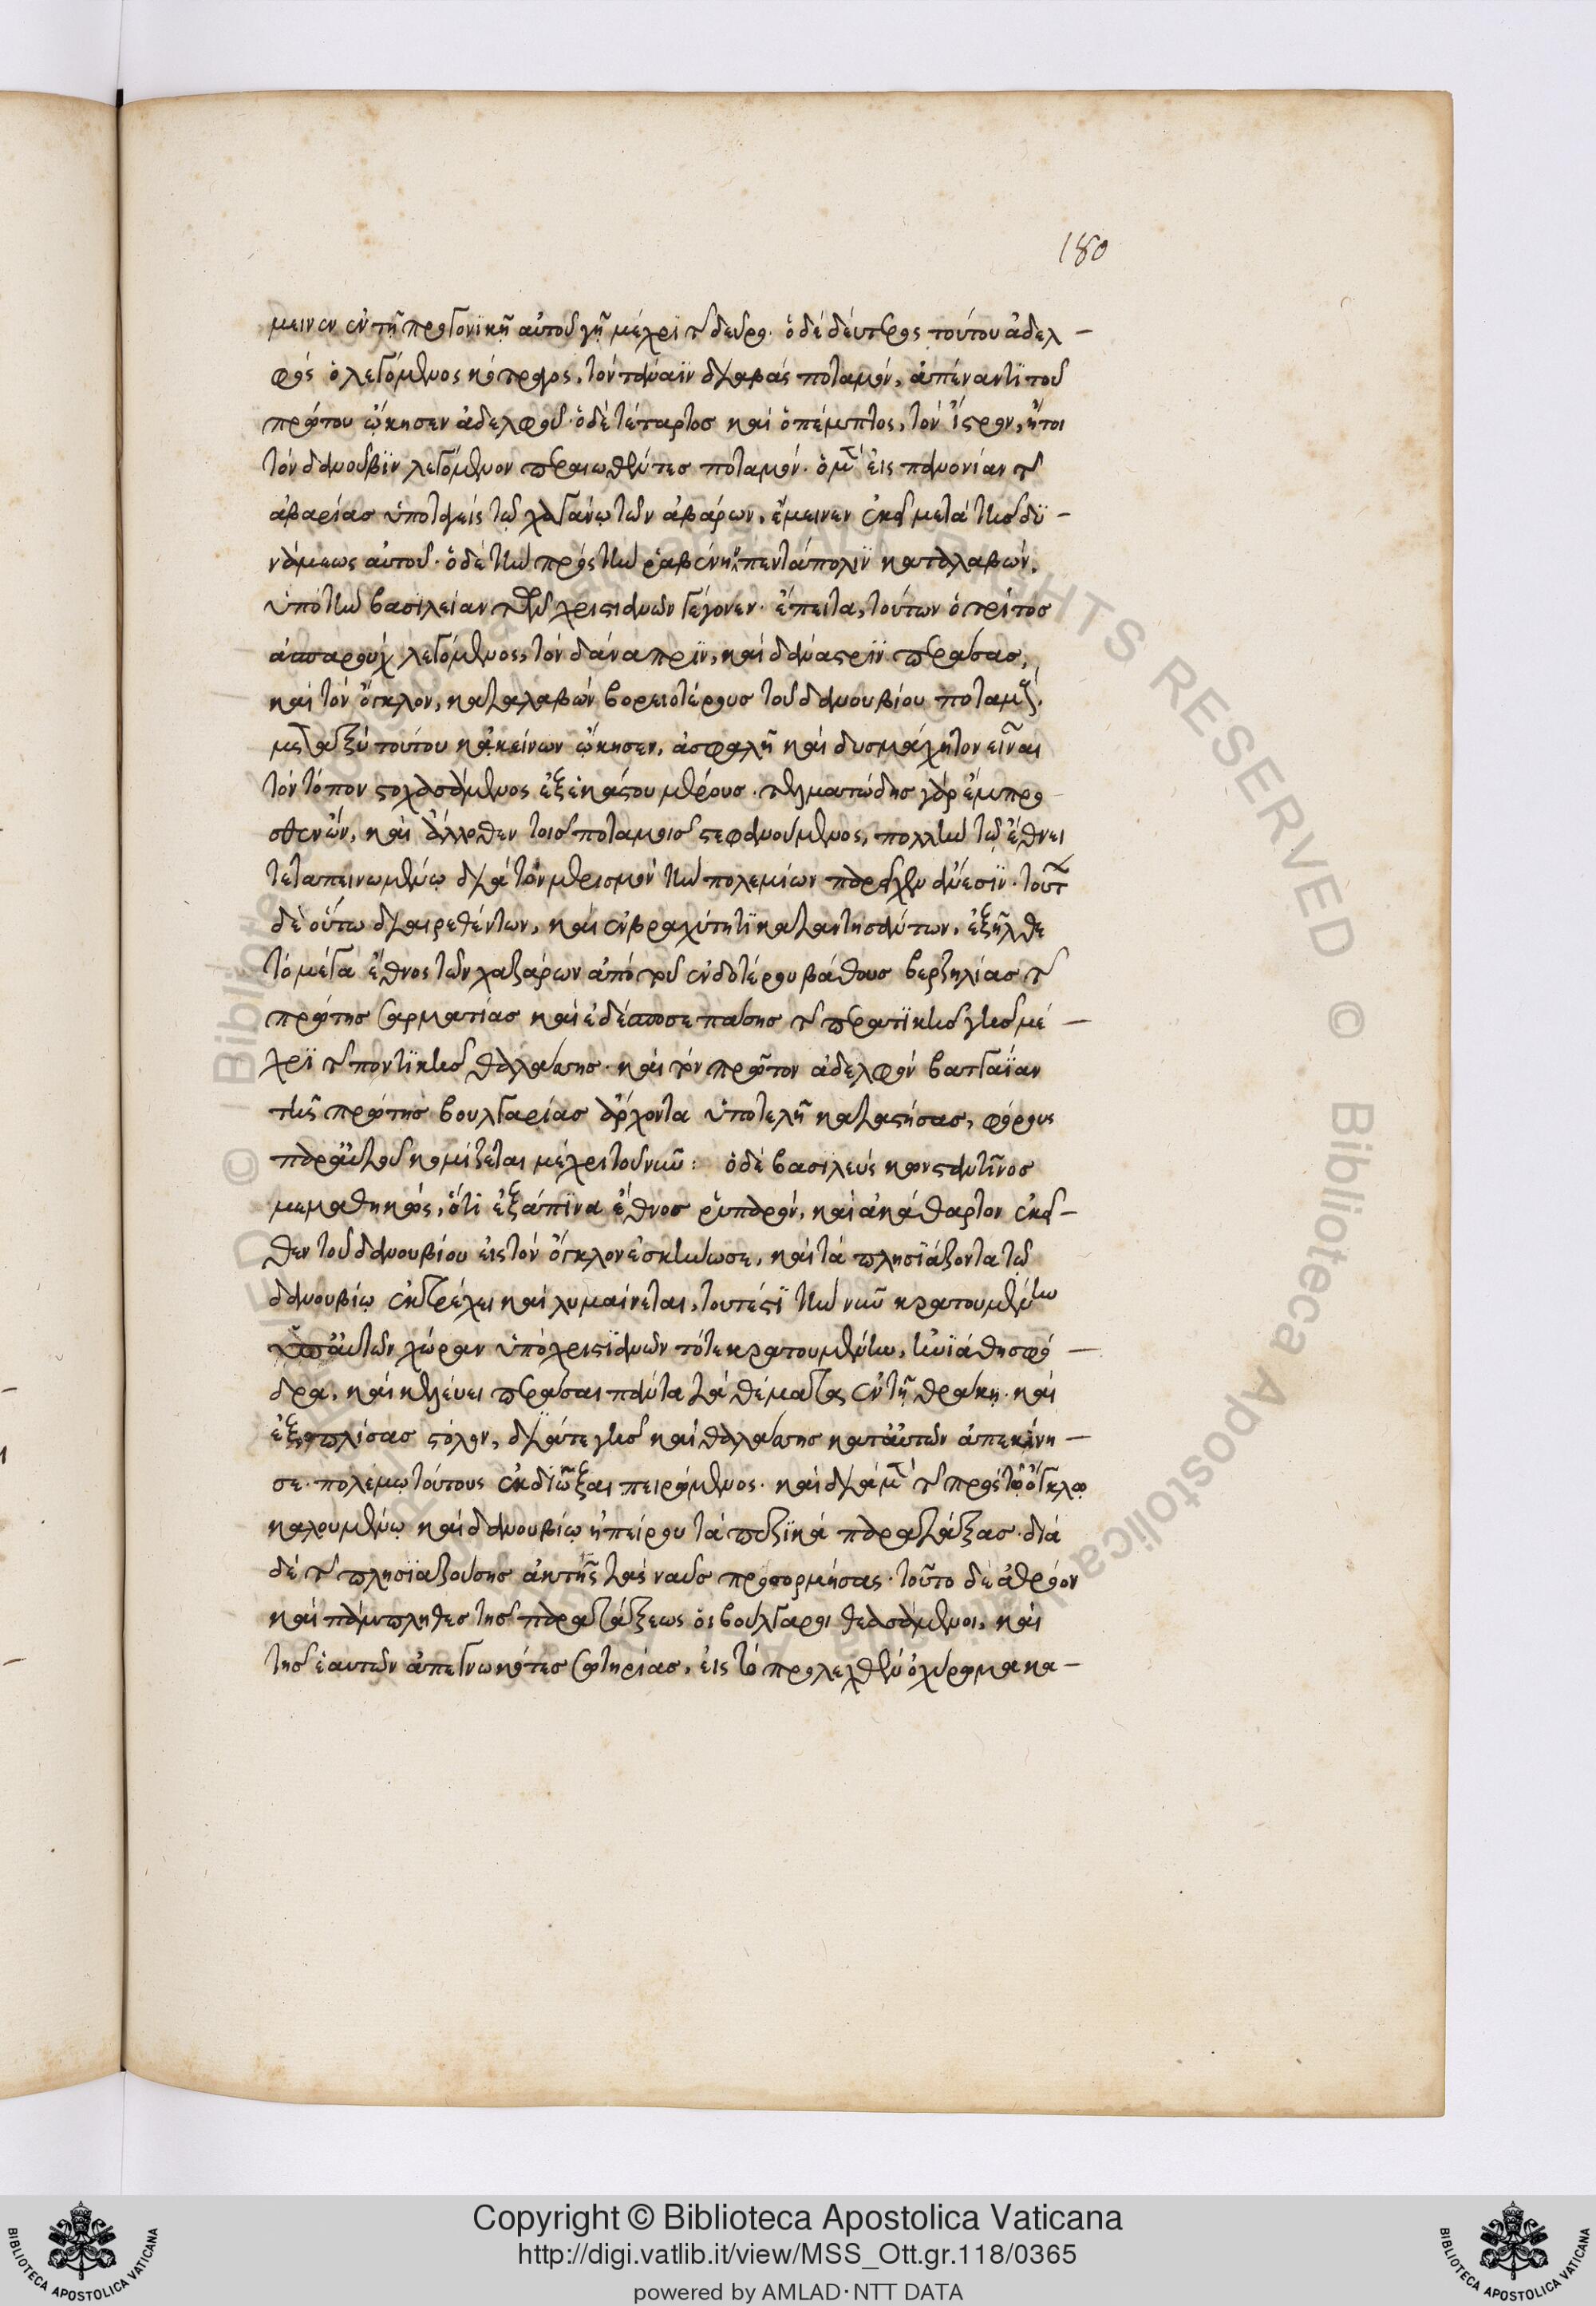 180
μεινεν ἐν τῇ προγονϊκῇ αὐτοῦ γῇ μέχρϊ τ δεῦρο. ὁ δὲ δεύτερος τούτου ἀδελ-
φός ὁ λεγόμενος κότραγος, τὸν τάναϊν διαβάς ποταμόν, ἀπέναντϊ τοῦ
πρώτου ᾤκησεν ἀδελφοῦ. ὁ δὲ τέταρτος καὶ ὁ πέμπτος, τὸν ἴστρον, ἤτοι
τὸν δανουβϊν λεγόμενον περαιωθέντες ποταμόν. ὁ μ εἰς πανονίαν τ
ἀβαρίας ὑποταγεὶς τῷ χαγάνῳ τῶν ἀβάρων, ἔμεινεν ἐκεῖ μετὰ τῆς δϋ-
νάμεως αὐτοῦ. ὁ δὲ τὴν πρὸς τὴν ῥάβεννη πεντάπολϊν καταλαβών,
ὑπὸ τὴν βασιλείαν τῶν χριστιανῶν γέγονεν. ἔπειτα, τούτων ὁ τρίτος
ἀσπαρούχ λεγόμενος, τὸν δάναπρϊν, καὶ δάναστρϊν περάσας,
καὶ τὸν ὄγκλον, καταλαβών βορειοτέρους τοῦ δανουβίου ποταμούς.
μεταξὺ τούτου κἀκείνων ᾤκησεν, ἀσφαλῆ καὶ δυσμάχητον εἶναι
τὸν τόπον στοχασάμενος ἐξ ἑκάστου μέρους. τελματώδης γὰρ ἔμπρο
σθεν ὤν, καὶ ἄλλοθεν τοῖς ποταμοῖς στεφανούμενος, πολλὴν τῷ ἔθνει
τεταπεινωμένῳ διὰ τὸν μερισμόν τὴν πολεμίων παρεῖχεν ἄνεσϊν. τούτ
δὲ οὕτω διαιρεθέντων, καὶ ἐν βραχύτητϊ καταντησάντων, ἐξῆλθε
τὸ μέγα ἔθνος τῶν χαζάρων ἀπὸ τοῦ ἐνδοτέρου βάθους βερζηλίας τ
πρώτης σαρματίας καὶ ἐδέσποσε πάσης τ περατϊκῆς γῆς μέ-
χρϊ τ ποντϊκῆς θαλάσσης. καὶ τὸν πρῶτον ἀδελφόν βατγαϊαν
τῆς πρώτης βουλγαρίας ἄρχοντα ὑποτελῆ καταστήσας, φόρους
παρ αὐτοῦ κομίζεται μέχρι τοῦ νῦν: ὁ δὲ βασιλεύς κωνσταντῖνος
μεμαθηκώς, ὅτϊ ἐξάπϊνα ἔθνος ῥυπαρόν, καὶ ἀκάθαρτον ἐκεῖ-
θεν τοῦ δανουβίου εἰς τὸν ὄγκλον ἐσκήνωσε, καὶ τὰ πλησϊάζοντα τῷ
δανουβίῳ ἐκτρέχει καὶ λυμαίνεται, τουτέστϊ τὴν νῦν κρατουμένην
ὑπ αὐτῶν χώραν ὑπὸ χριστϊανῶν τότε κρατουμένην, ἠνϊάθη σφό-
δρα, καὶ κελεύει περάσαι πάντα τὰ θέματα ἐν τῇ θράκῃ. καὶ
ἐξοπλίσας στόλον, διά τε γῆς καὶ θαλάσσης κατ αὐτῶν ἀπεκίνη-
σε. πολέμῳ τούτους ἐκδιῶξαι πειρώμενος. καὶ διὰ μ τ πρὸς τῷ ὄγκλῳ
καλουμένῳ καὶ δανουβίῳ ἠπείρου τὰ πεζϊκά παρατάξας. διὰ
δὲ τ πλησϊαζούσης ἀκτῆς τὰς ναῦς προσορμήσας. τοῦτο δὲ ἀθρόον
καὶ πάμπληθες τῆς παρατάξεως οἱ βούλγαροι θεασάμενοι, καὶ
τῆς ἑαυτῶν ἀπεγνωκότες σωτηρίας, εἰς τὸ προλεχθὲν ὀχύρωμα κα-
Copyright © Biblioteca Apostolica Vaticana
http://digi.vatlib.it/view/MSS_Ott.gr.118/0365
powered by AMLAD·NTT DATA